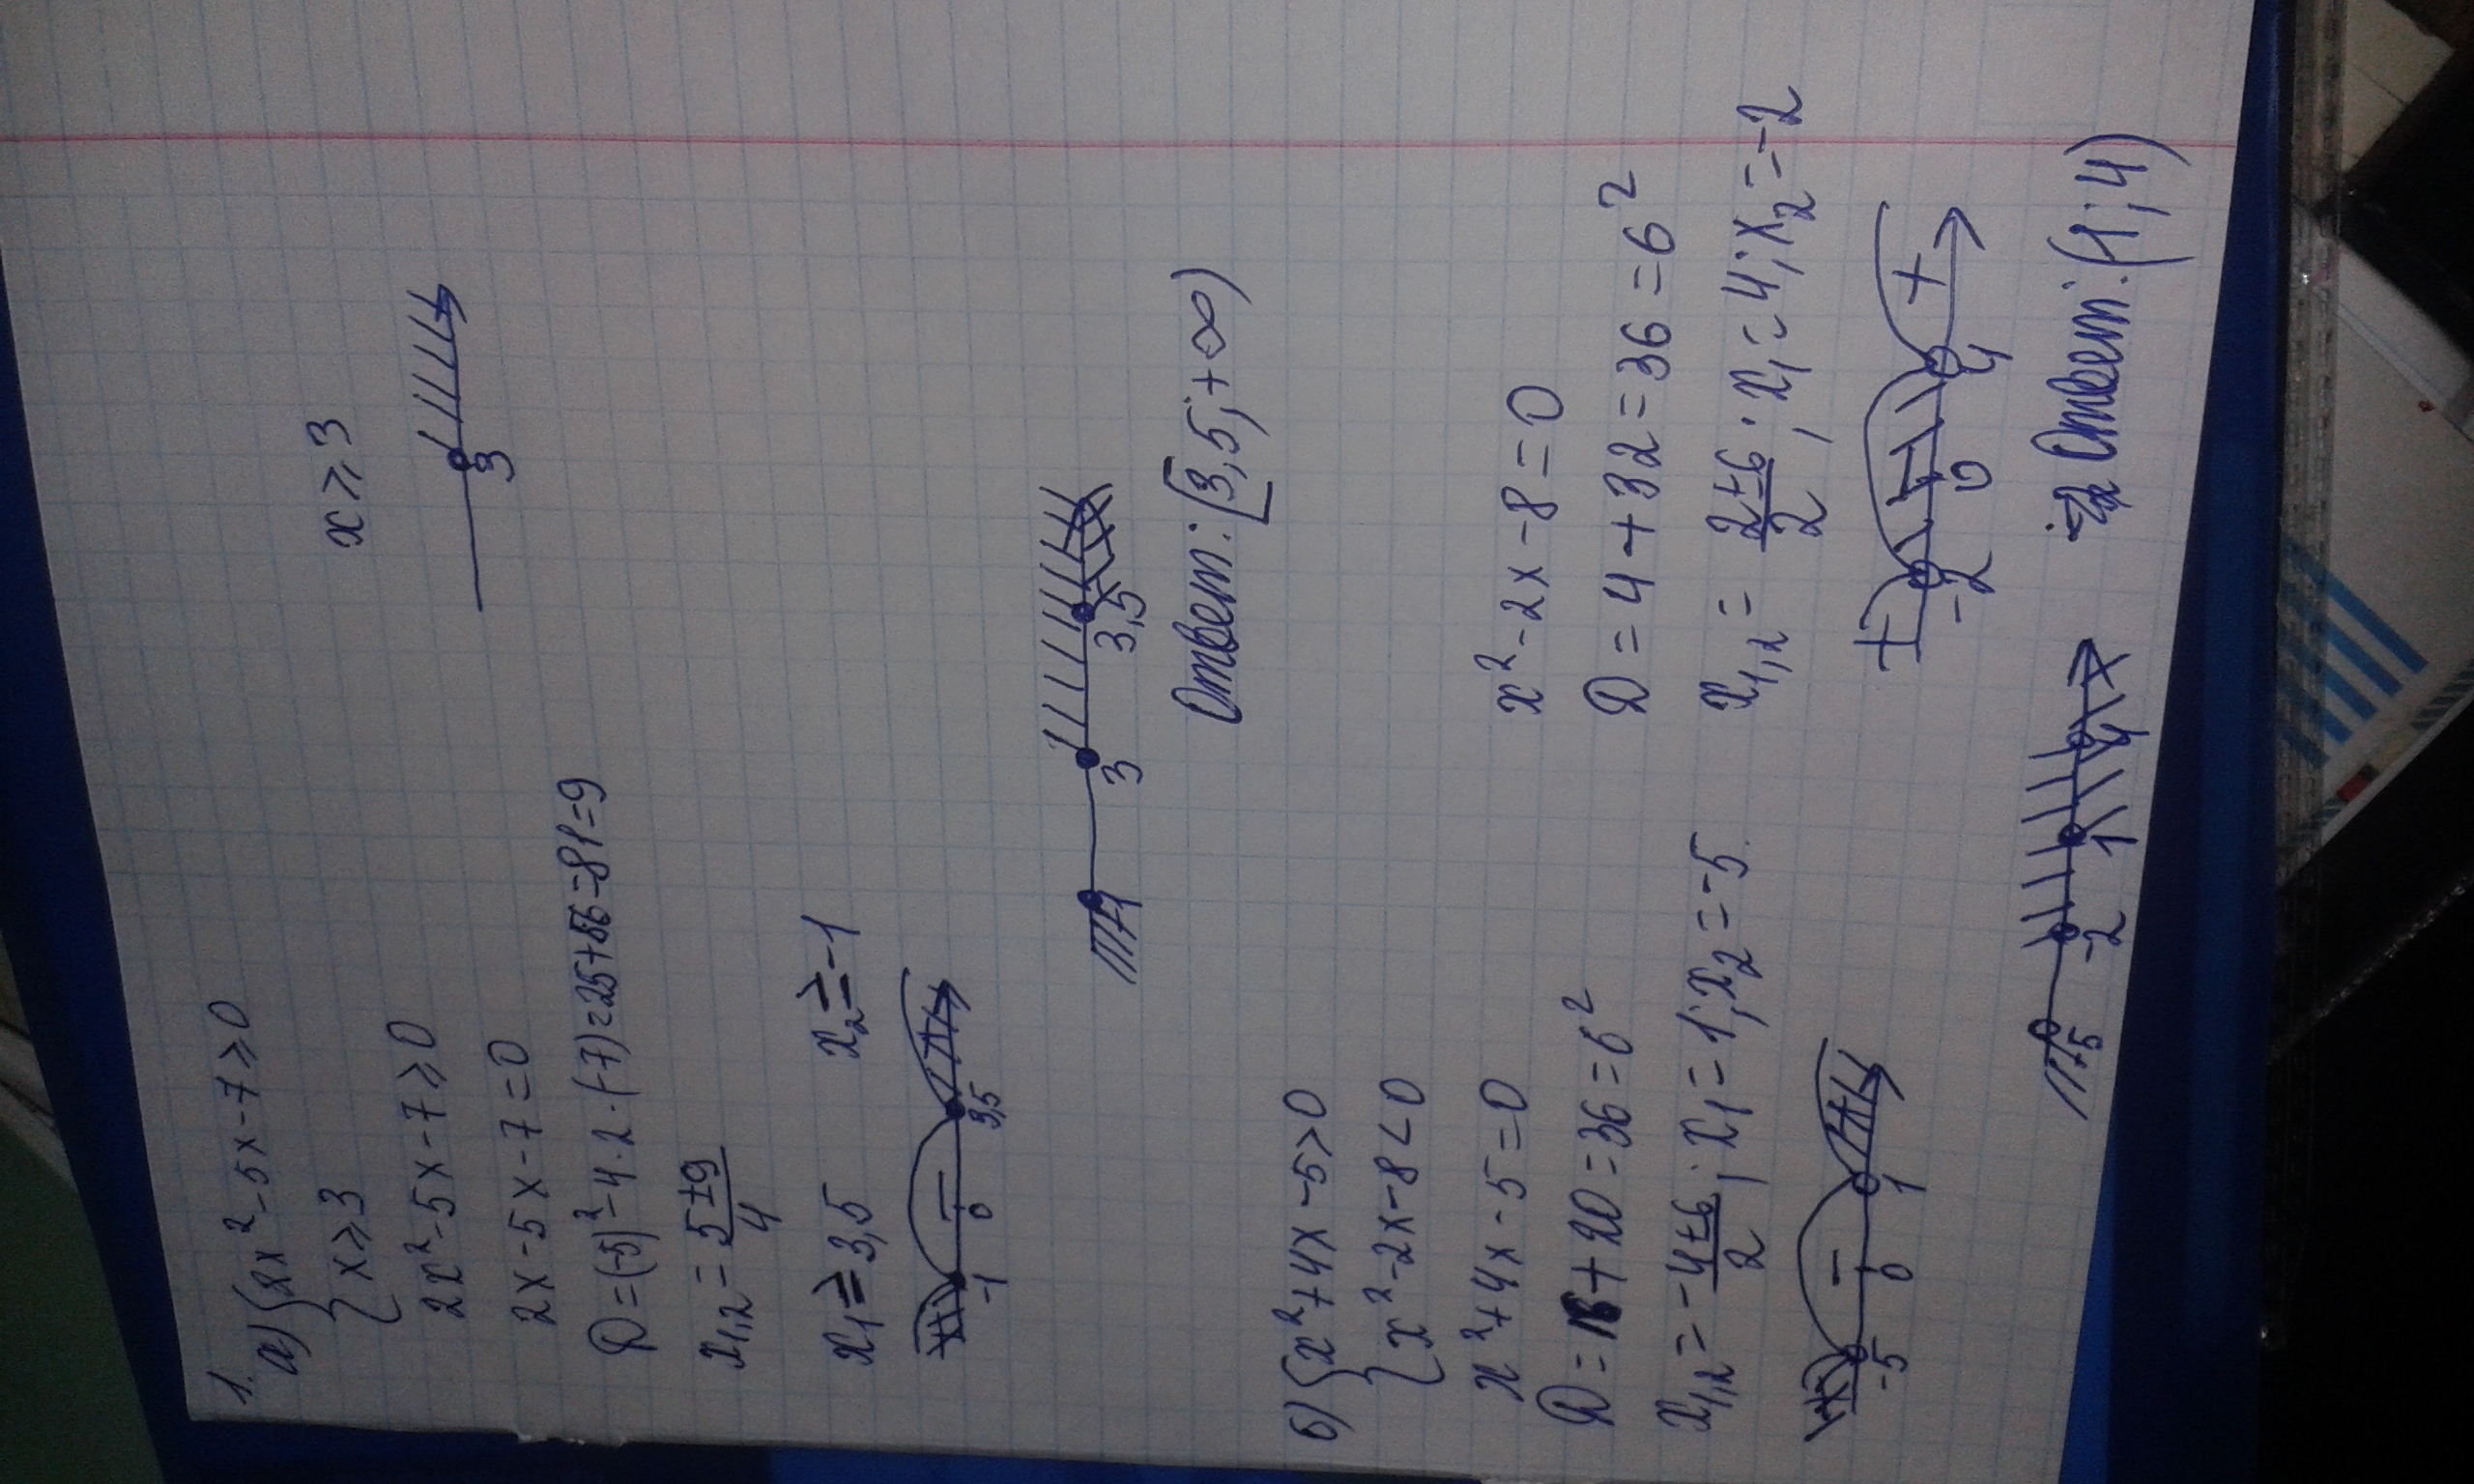 1.
а) { 2x² - 5x - 7 ≥ 0
{ x ≥ 3
2x² - 5x - 7 ≥ 0
x ≥ 3
2x - 5x - 7 = 0
3
D = (-5)² - 4 · 2 · (-7) = 25 + 56 = 81 = 9
x₁,₂ = (5 ± 9)/4
x₁ ≥ 3,5 x₂ ≥ -1
-1 0 3,5
-
-1 3 3,5
Ответ: [3,5; +∞)
б) { x² + 4x - 5 > 0
{ x² - 2x - 8 < 0
x² + 4x - 5 = 0
D = 16 + 20 = 36 = 6²
x₁,₂ = (-4 ± 6)/2 ; x₁ = 1; x₂ = -5
-5 0 1
-
x² - 2x - 8 = 0
D = 4 + 32 = 36 = 6²
x₁,₂ = (2 ± 6)/2 ; x₁ = 4; x₂ = -2
+ - +
-2 0 4
-5 -2 1 4
Ответ: (1; 4)